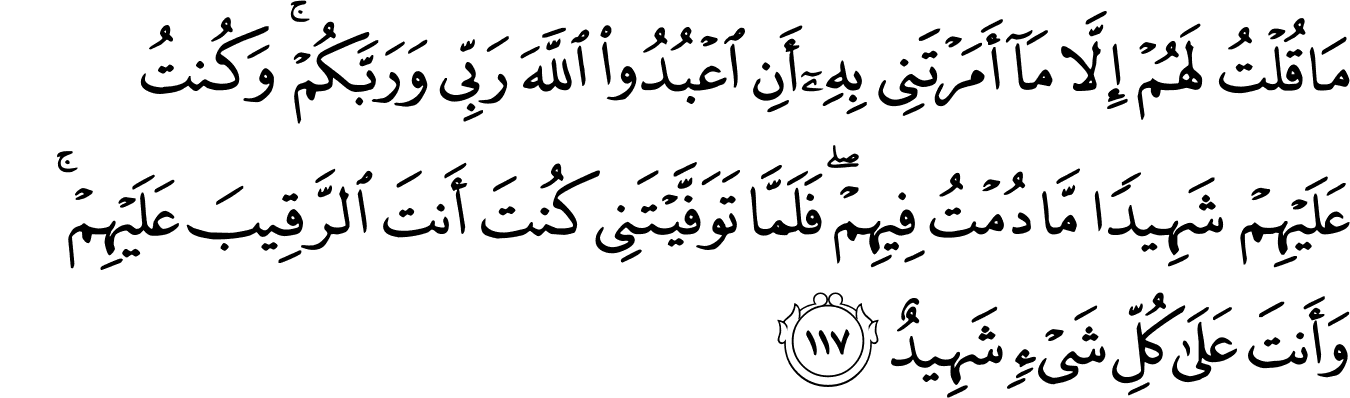 مَا قُلْتُ لَهُمْ إِلَّا مَآ أَمَرْتَنِى بِهِۦٓ أَنِ ٱعْبُدُوا۟ ٱللَّهَ رَبِّى وَرَبَّكُمْ ۚ وَكُنتُ
عَلَيْهِمْ شَهِيدًا مَّا دُمْتُ فِيهِمْ ۖ فَلَمَّا تَوَفَّيْتَنِى كُنتَ أَنتَ ٱلرَّقِيبَ عَلَيْهِمْ ۚ
وَأَنتَ عَلَىٰ كُلِّ شَىْءٍ شَهِيدٌ ١١٧